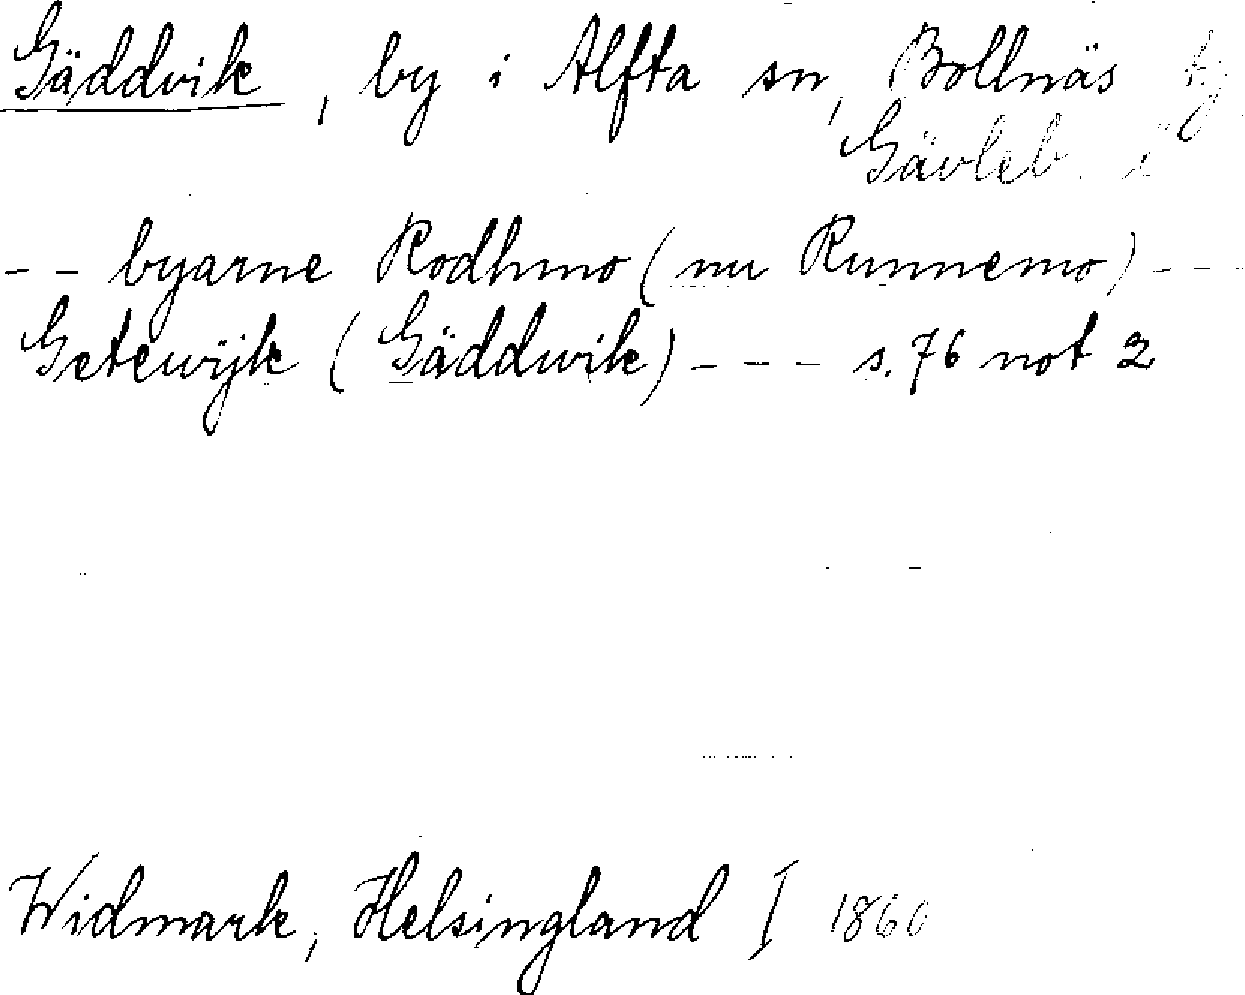 Gäddvik, by i Alfta sn, Bollnäs tg
Gävleb. l
-- byarne Rodhmo (nu Runnemo) ---
Getewijk (Gäddwik) --- s. 76 not 2
Widmark, Helsingland I 1860